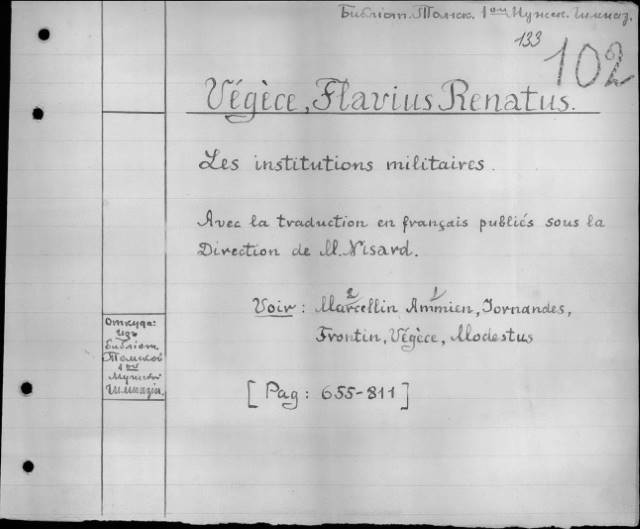 Библіот. Томск. 1ой Мужск. Гимназ.
133
102
Végèce, Flavius Renatus.
Les institutions militaires.
Avec la traduction en français publiés sous la
Direction de M. Nisard.
2 1
Voir: Marcellin Ammien, Jornandes,
Frontin, Végèce, Modestus
[Pag: 655-811]
Откуда:
Изъ
Библіот.
Томской
1ой
Мужской
Гимназіи.